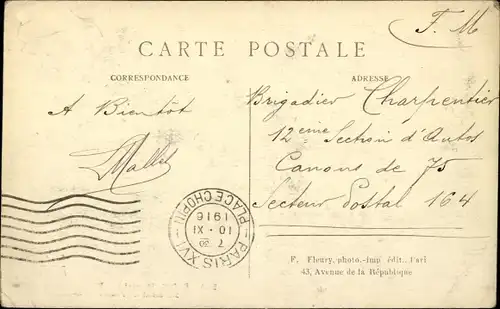 F. M
CARTE POSTALE
CORRESPONDANCE
ADRESSE
A Bientôt
Brigadier Charpentier
12ème Section d'Autos
Canons de 75
Secteur Postal 164
PARIS XVI
PLACE CHOPIN
7 30
10 - XI
1916
F. Fleury, photo.-imp édit., Pari
43, Avenue de la République